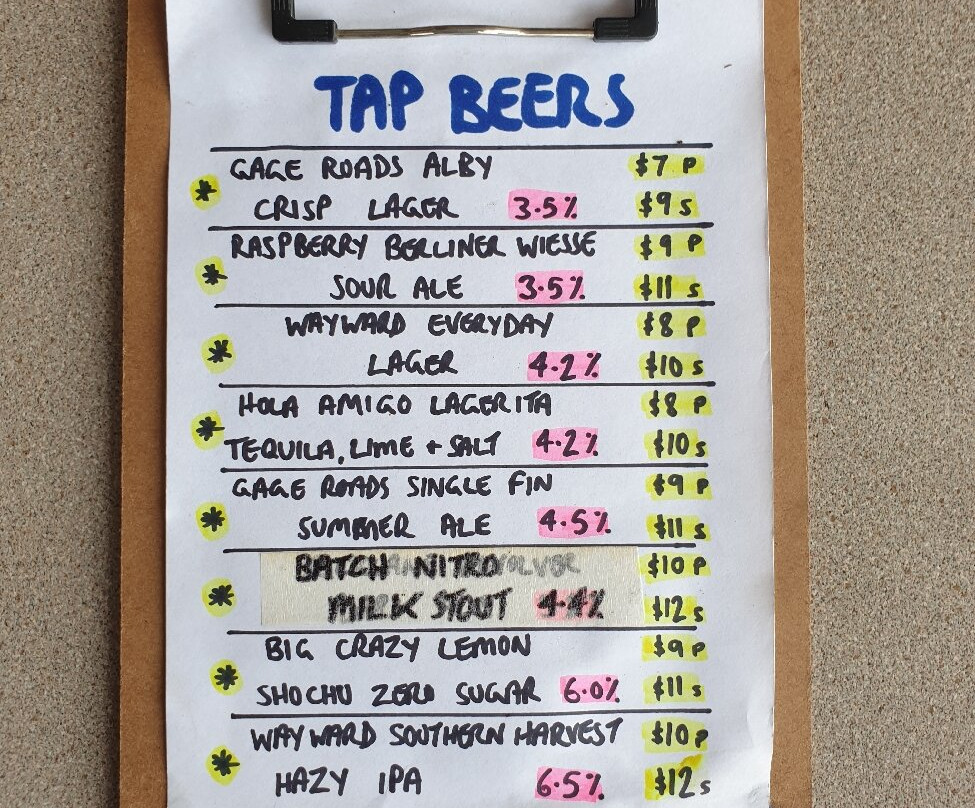 TAP BEERS
GAGE ROADS ALBY $7 P
* CRISP LAGER 3.5% $9 S
RASPBERRY BERLINER WIESSE $9 P
* SOUR ALE 3.5% $11 S
WAYWARD EVERYDAY $8 P
* LAGER 4.2% $10 S
HOLA AMIGO LAGERITA $8 P
* TEQUILA, LIME + SALT 4.2% $10 S
GAGE ROADS SINGLE FIN $9 P
* SUMMER ALE 4.5% $11 S
BATCH NITRO $10 P
* MILK STOUT 4.4% $12 S
BIG CRAZY LEMON $9 P
* SHOCHU ZERO SUGAR 6.0% $11 S
WAYWARD SOUTHERN HARVEST $10 P
* HAZY IPA 6.5% $12 S